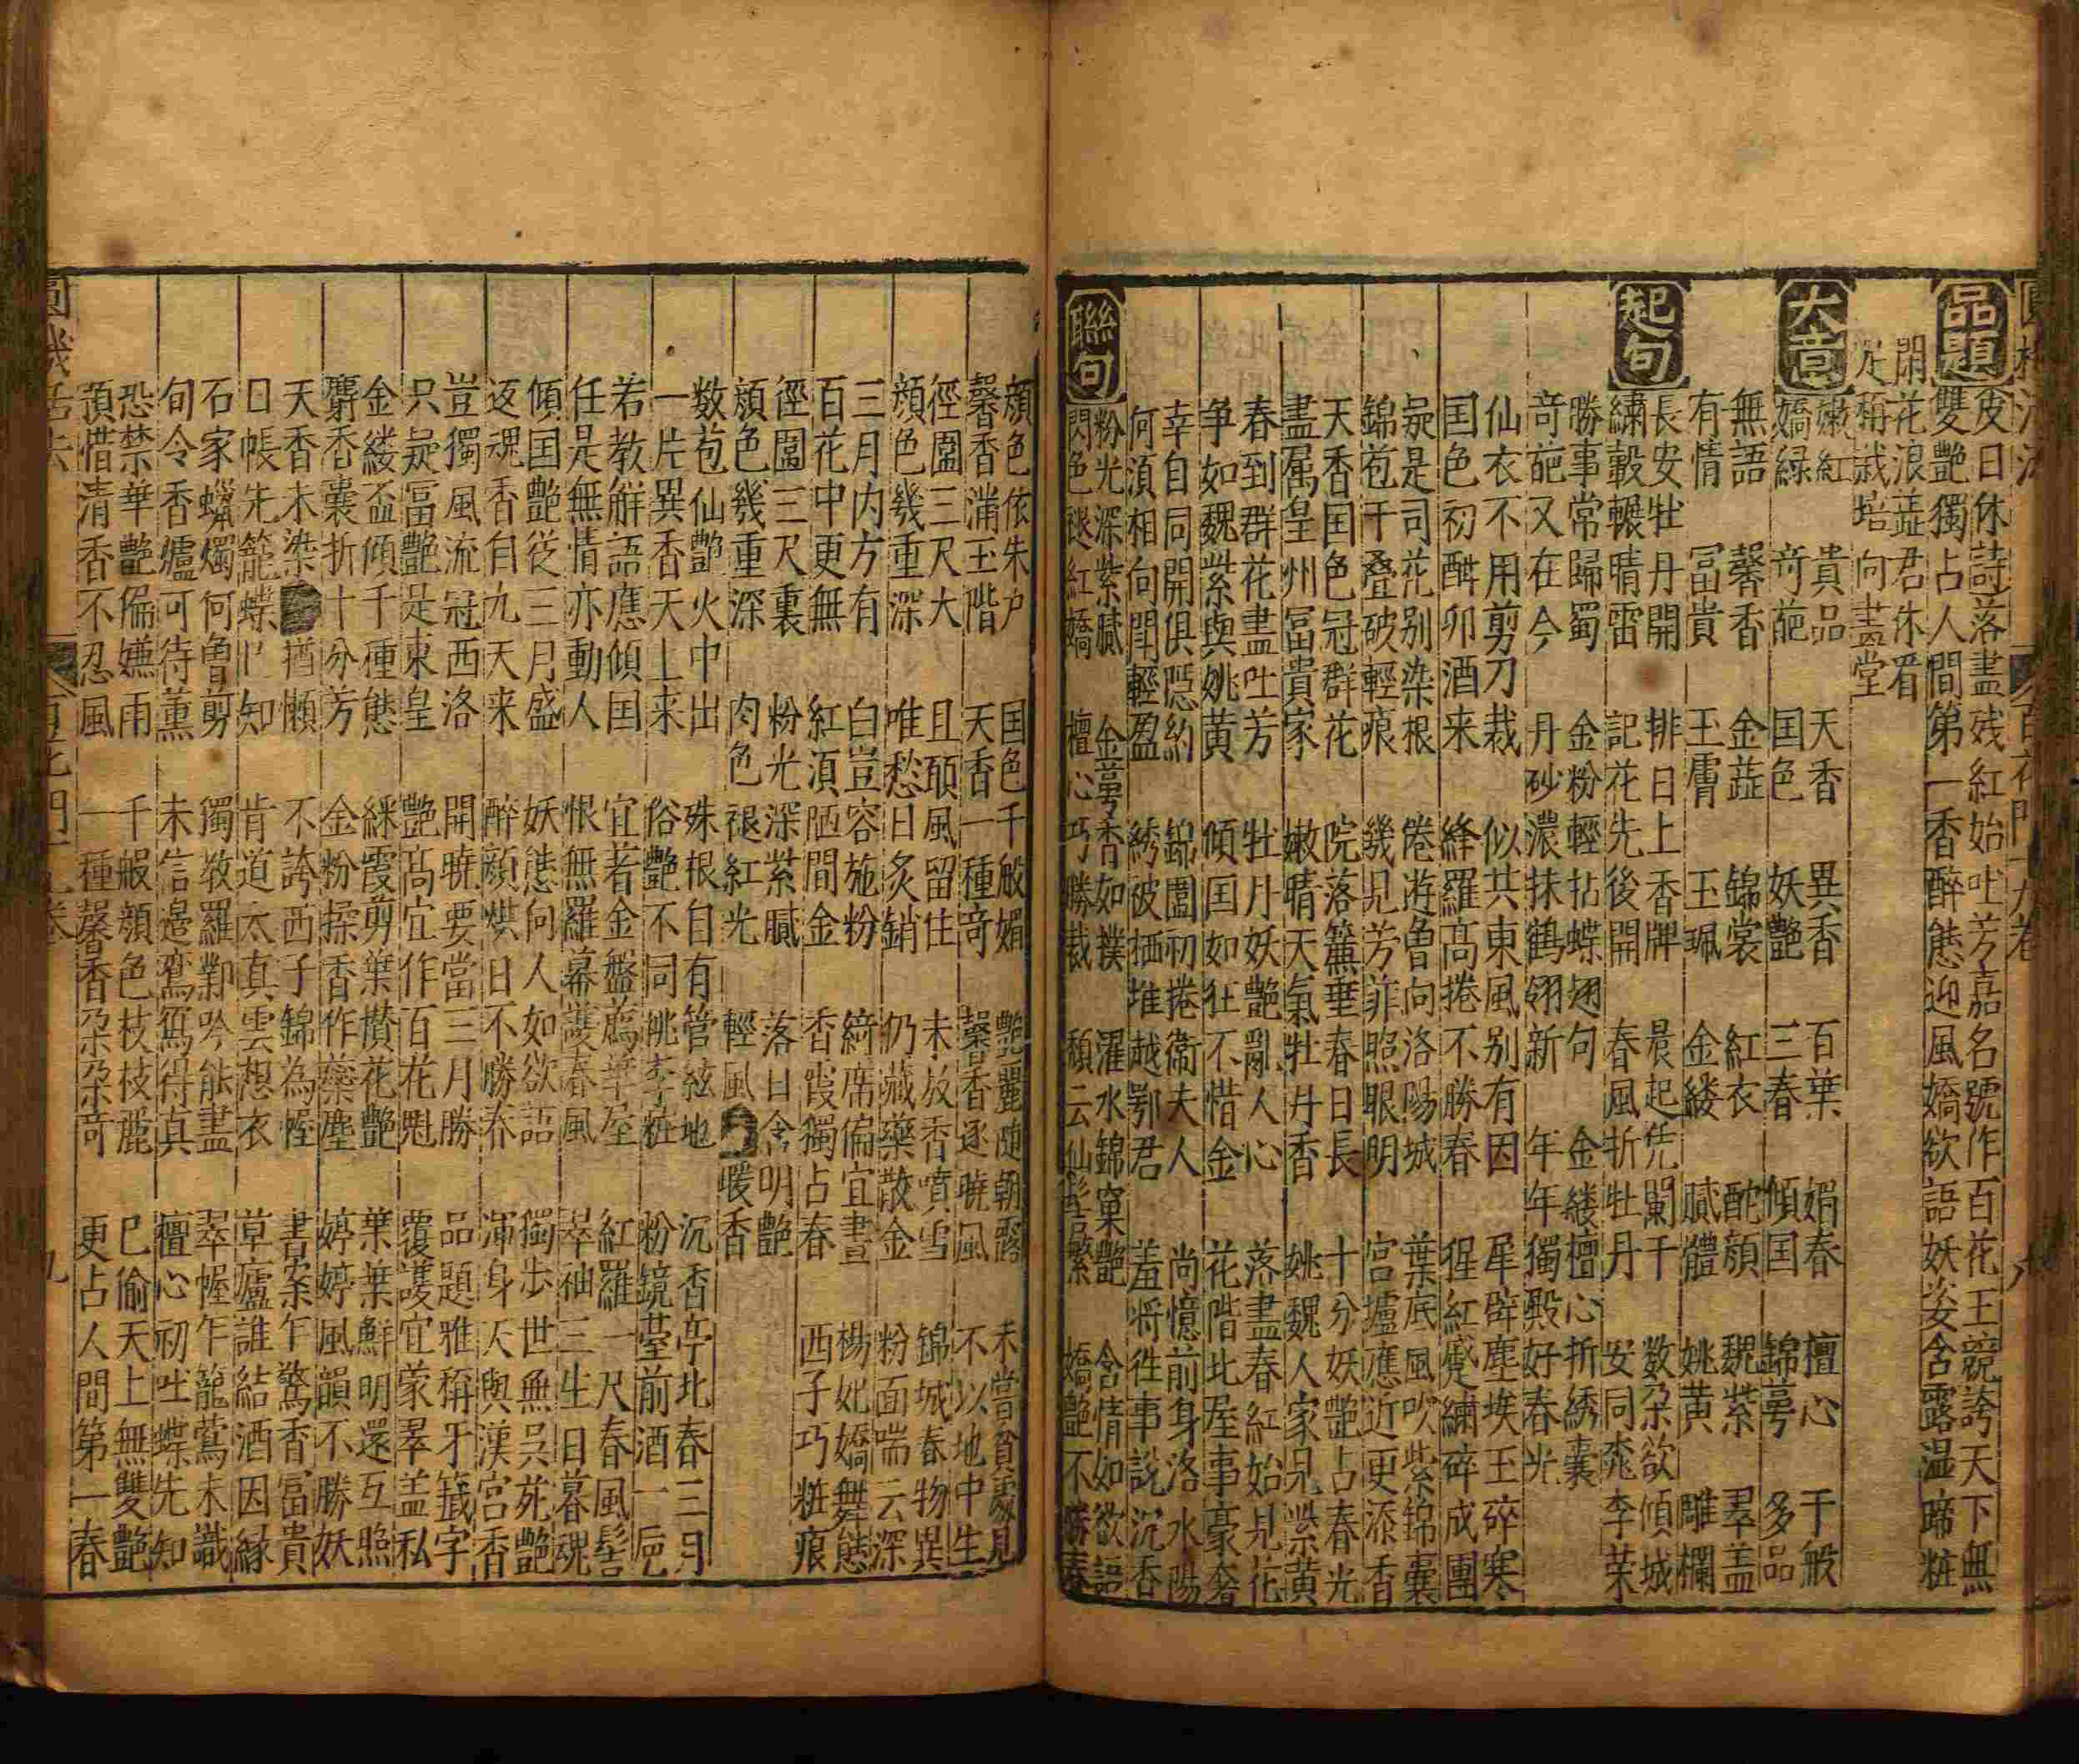 品題 皮日休詩落盡残紅始吐芳嘉名號作百花王競誇天下無
雙艷獨占人間第一香 醉態迎風嬌欲語妖姿含露温啼粧
閑花浪蕋君休看
足稱栽培向畫堂
大意 嫩紅 貴品 天香 異香 百葉 媚春 檀心 千般
嬌緑 竒葩 国色 妖艷 三春 傾国 錦萼 多品
無語 馨香 金蕋 錦裳 紅衣 酡顔 魏紫 翠盖
有情 冨貴 玉膚 玉珮 金縷 膩體 姚黄 雕欄
起句 長安牡丹開 排日上香牌 晨起凭闌干 数朵欲傾城
繡轂輾晴雷 記花先後開 春風折牡丹 安同桃李荣
勝事常歸蜀 金粉輕拈蝶翅句 金縷檀心折綉囊
竒葩又在今 丹砂濃抹鶴翎新 年年獨殿好春光
仙衣不用剪刀裁 似共東風别有因 犀辟塵埃玉碎寒
国色初酣卯酒来 絳羅髙捲不勝春 猩紅蹙繡碎成團
疑是司花别染根 倦遊曽向洛陽城 葉底風吹紫錦囊
錦苞千叠破輕痕 幾見芳菲照眼明 宫爐應近更添香
天香国色冠群花 院落簾垂春日長 十分妖艷占春光
盡属皇州冨貴家 嫩晴天氣牡丹香 姚魏人家見紫黄
春到群花盡吐芳 牡丹妖艷亂人心 落盡春紅始見花
争如魏紫與姚黄 傾国如狂不惜金 花階北屋事豪奢
幸自同開俱隠約 錦圍初捲衛夫人 尚憶前身洛水陽
何湏相向鬪輕盈 綉被栖堆越鄂君 羞将徃事説沉香
聯句 粉光深紫膩 金萼香如撲 濯水錦窠艷 含情如欲語
閃色褪紅嬌 檀心巧勝裁 頽云仙髻繁 嬌艷不勝春
顔色依朱户 国色千般媚 艷麗随朝露 未嘗貧處見
馨香満玉階 天香一種竒 馨香逐曉風 不以地中生
徑圍三尺大 且頋風留住 未放香噴雪 錦城春物異
顔色幾重深 唯愁日炙銷 仍藏蘂散金 粉面喘云深
三月内方有 白豈容施粉 綺席偏宜畫 楊妃嬌舞態
百花中更無 紅湏陋間金 香霞獨占春 西子巧粧痕
徑圍三尺裏 粉光深紫膩 落日含明艷
顔色幾重深 肉色褪紅光 輕風暖香
数苞仙艷火中出 殊根自有管絃地 沉香亭北春三月
一片異香天上来 俗艷不同桃李粧 粉鏡臺前酒一巵
若教解語應傾国 宜著金盤薦華屋 紅羅一尺春風髻
任是無情亦動人 恨無羅幕護春風 萃袖三生日暮魂
傾国艷從三月盛 妖態向人如欲語 獨歩世無呉苑艷
返魂香自九天来 醉顔烘日不勝春 渾身天與漢宮香
豈獨風流冠西洛 開曉要當三月勝 品題雅稱牙籖字
只疑冨艷是東皇 艷髙宜作百花魁 覆護宜蒙翠盖私
金縷盃傾千種態 綵霞剪葉攅花艷 葉葉鮮明還互照
麝香囊折十分芳 金粉揉香作蘂塵 婷婷風韻不勝妖
天香未染猶懶 不誇西子錦為幄 書案乍驚香冨貴
日帳先籠蝶知 肯道太真雲想衣 草廬誰結酒因縁
石家蠟燭何曽剪 獨教羅鄴吟能盡 翠幄乍籠鶯未識
旬令香爐可待薫 未信邊鸞寫得真 檀心初吐蝶先知
恐禁華艷偏嫌雨 千般顔色枝枝麗 已偷天上無雙艷
預惜清香不忍風 一種馨香朶朶竒 更占人間第一春
九